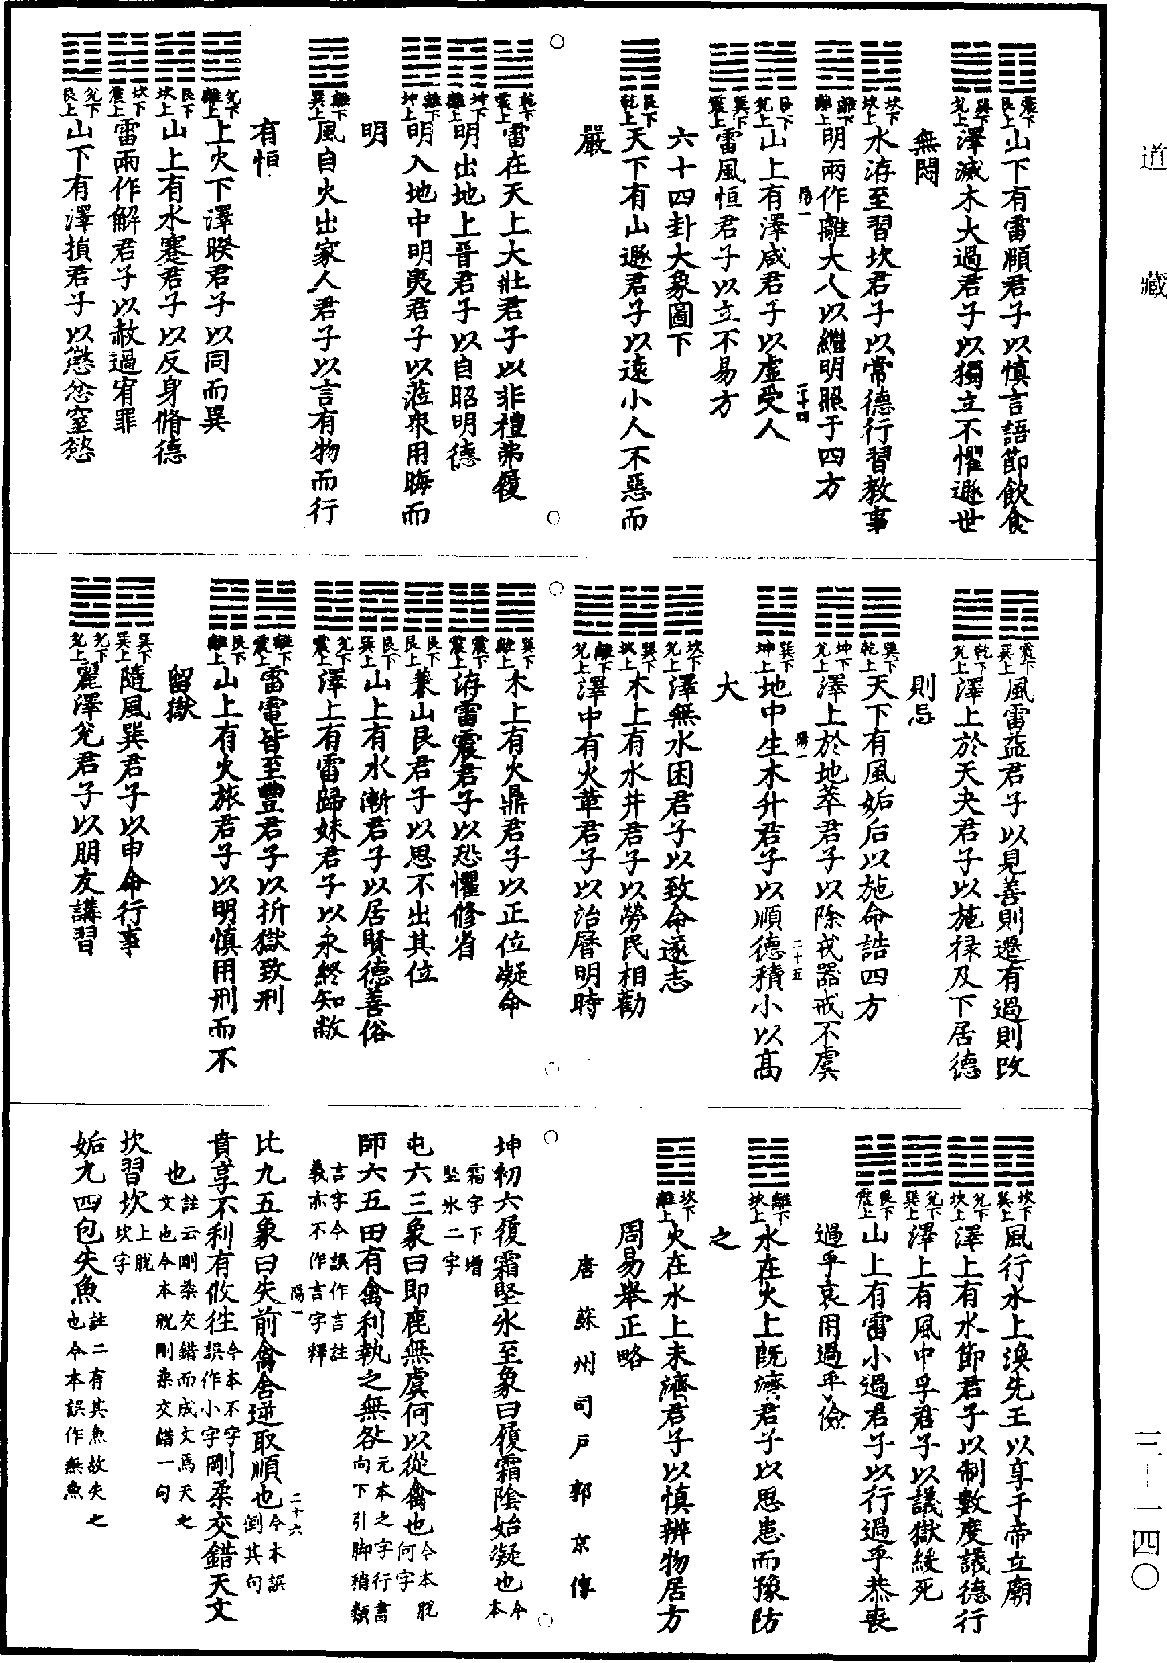 道藏
三—一四〇
震下艮上山下有雷頤君子以慎言語節飲食
巽下兌上澤滅木大過君子以獨立不懼遯世
無悶
坎下坎上水洊至習坎君子以常德行習教事
離下離上明兩作離大人以繼明照于四方
陽一 二十四
艮下兌上山上有澤咸君子以虛受人
巽下震上雷風恒君子以立不易方
六十四卦大象圖下
艮下乾上天下有山遯君子以遠小人不惡而
嚴
乾下震上雷在天上大壯君子以非禮弗履
坤下離上明出地上晉君子以自昭明德
離下坤上明入地中明夷君子以蒞衆用晦而
明
離下巽上風自火出家人君子以言有物而行
有恒
兌下離上上火下澤睽君子以同而異
艮下坎上山上有水蹇君子以反身脩德
坎下震上雷雨作解君子以赦過宥罪
兌下艮上山下有澤損君子以懲忿窒慾
震下巽上風雷益君子以見善則遷有過則改
乾下兌上澤上於天夬君子以施祿及下居德
則忌
巽下乾上天下有風姤后以施命誥四方
坤下兌上澤上於地萃君子以除戎器戒不虞
陽一 二十五
巽下坤上地中生木升君子以順德積小以高
大
坎下兌上澤無水困君子以致命遂志
巽下坎上木上有水井君子以勞民相勸
離下兌上澤中有火革君子以治曆明時
巽下離上木上有火鼎君子以正位凝命
震下震上洊雷震君子以恐懼修省
艮下艮上兼山艮君子以思不出其位
艮下巽上山上有水漸君子以居賢德善俗
兌下震上澤上有雷歸妹君子以永終知敝
離下震上雷電皆至豐君子以折獄致刑
艮下離上山上有火旅君子以明慎用刑而不
留獄
巽下巽上隨風巽君子以申命行事
兌下兌上麗澤兌君子以朋友講習
坎下巽上風行水上渙先王以享于帝立廟
兌下坎上澤上有水節君子以制數度議德行
兌下巽上澤上有風中孚君子以議獄緩死
艮下震上山上有雷小過君子以行過乎恭喪
過乎哀用過乎儉
離下坎上水在火上既濟君子以思患而豫防
之
坎下離上火在水上未濟君子以慎辨物居方
周易舉正略
唐蘇州司戶郭京傳
坤初六履霜堅氷至象曰履霜陰始凝也今本
霜字下增堅氷二字
屯六三象曰即鹿無虞何以從禽也今本脫何字
師六五田有禽利執之無咎元本之字行書向下引脚稍類
言字今誤作言註義亦不作言字釋
比九五象曰失前禽舍逆取順也今本誤倒其句
陽一 二十六
賁享不利有攸往今本不字誤作小字剛柔交錯天文
也註云剛柔交錯而成文焉天之文也今本脫剛柔交錯一句
坎習坎上脫坎字
姤九四包失魚註二有其魚故失之也今本誤作無魚